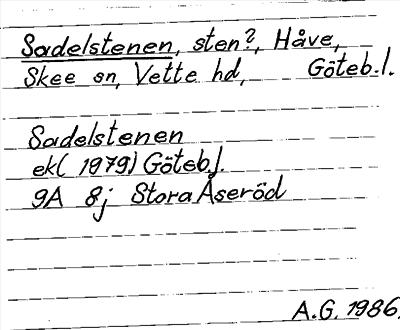 Sadelstenen, sten?, Håve,
Skee sn, Vette hd, Göteb.l.
Sadelstenen
ek (1979) Göteb.l.
9A 8j Stora Åseröd
A.G. 1986.